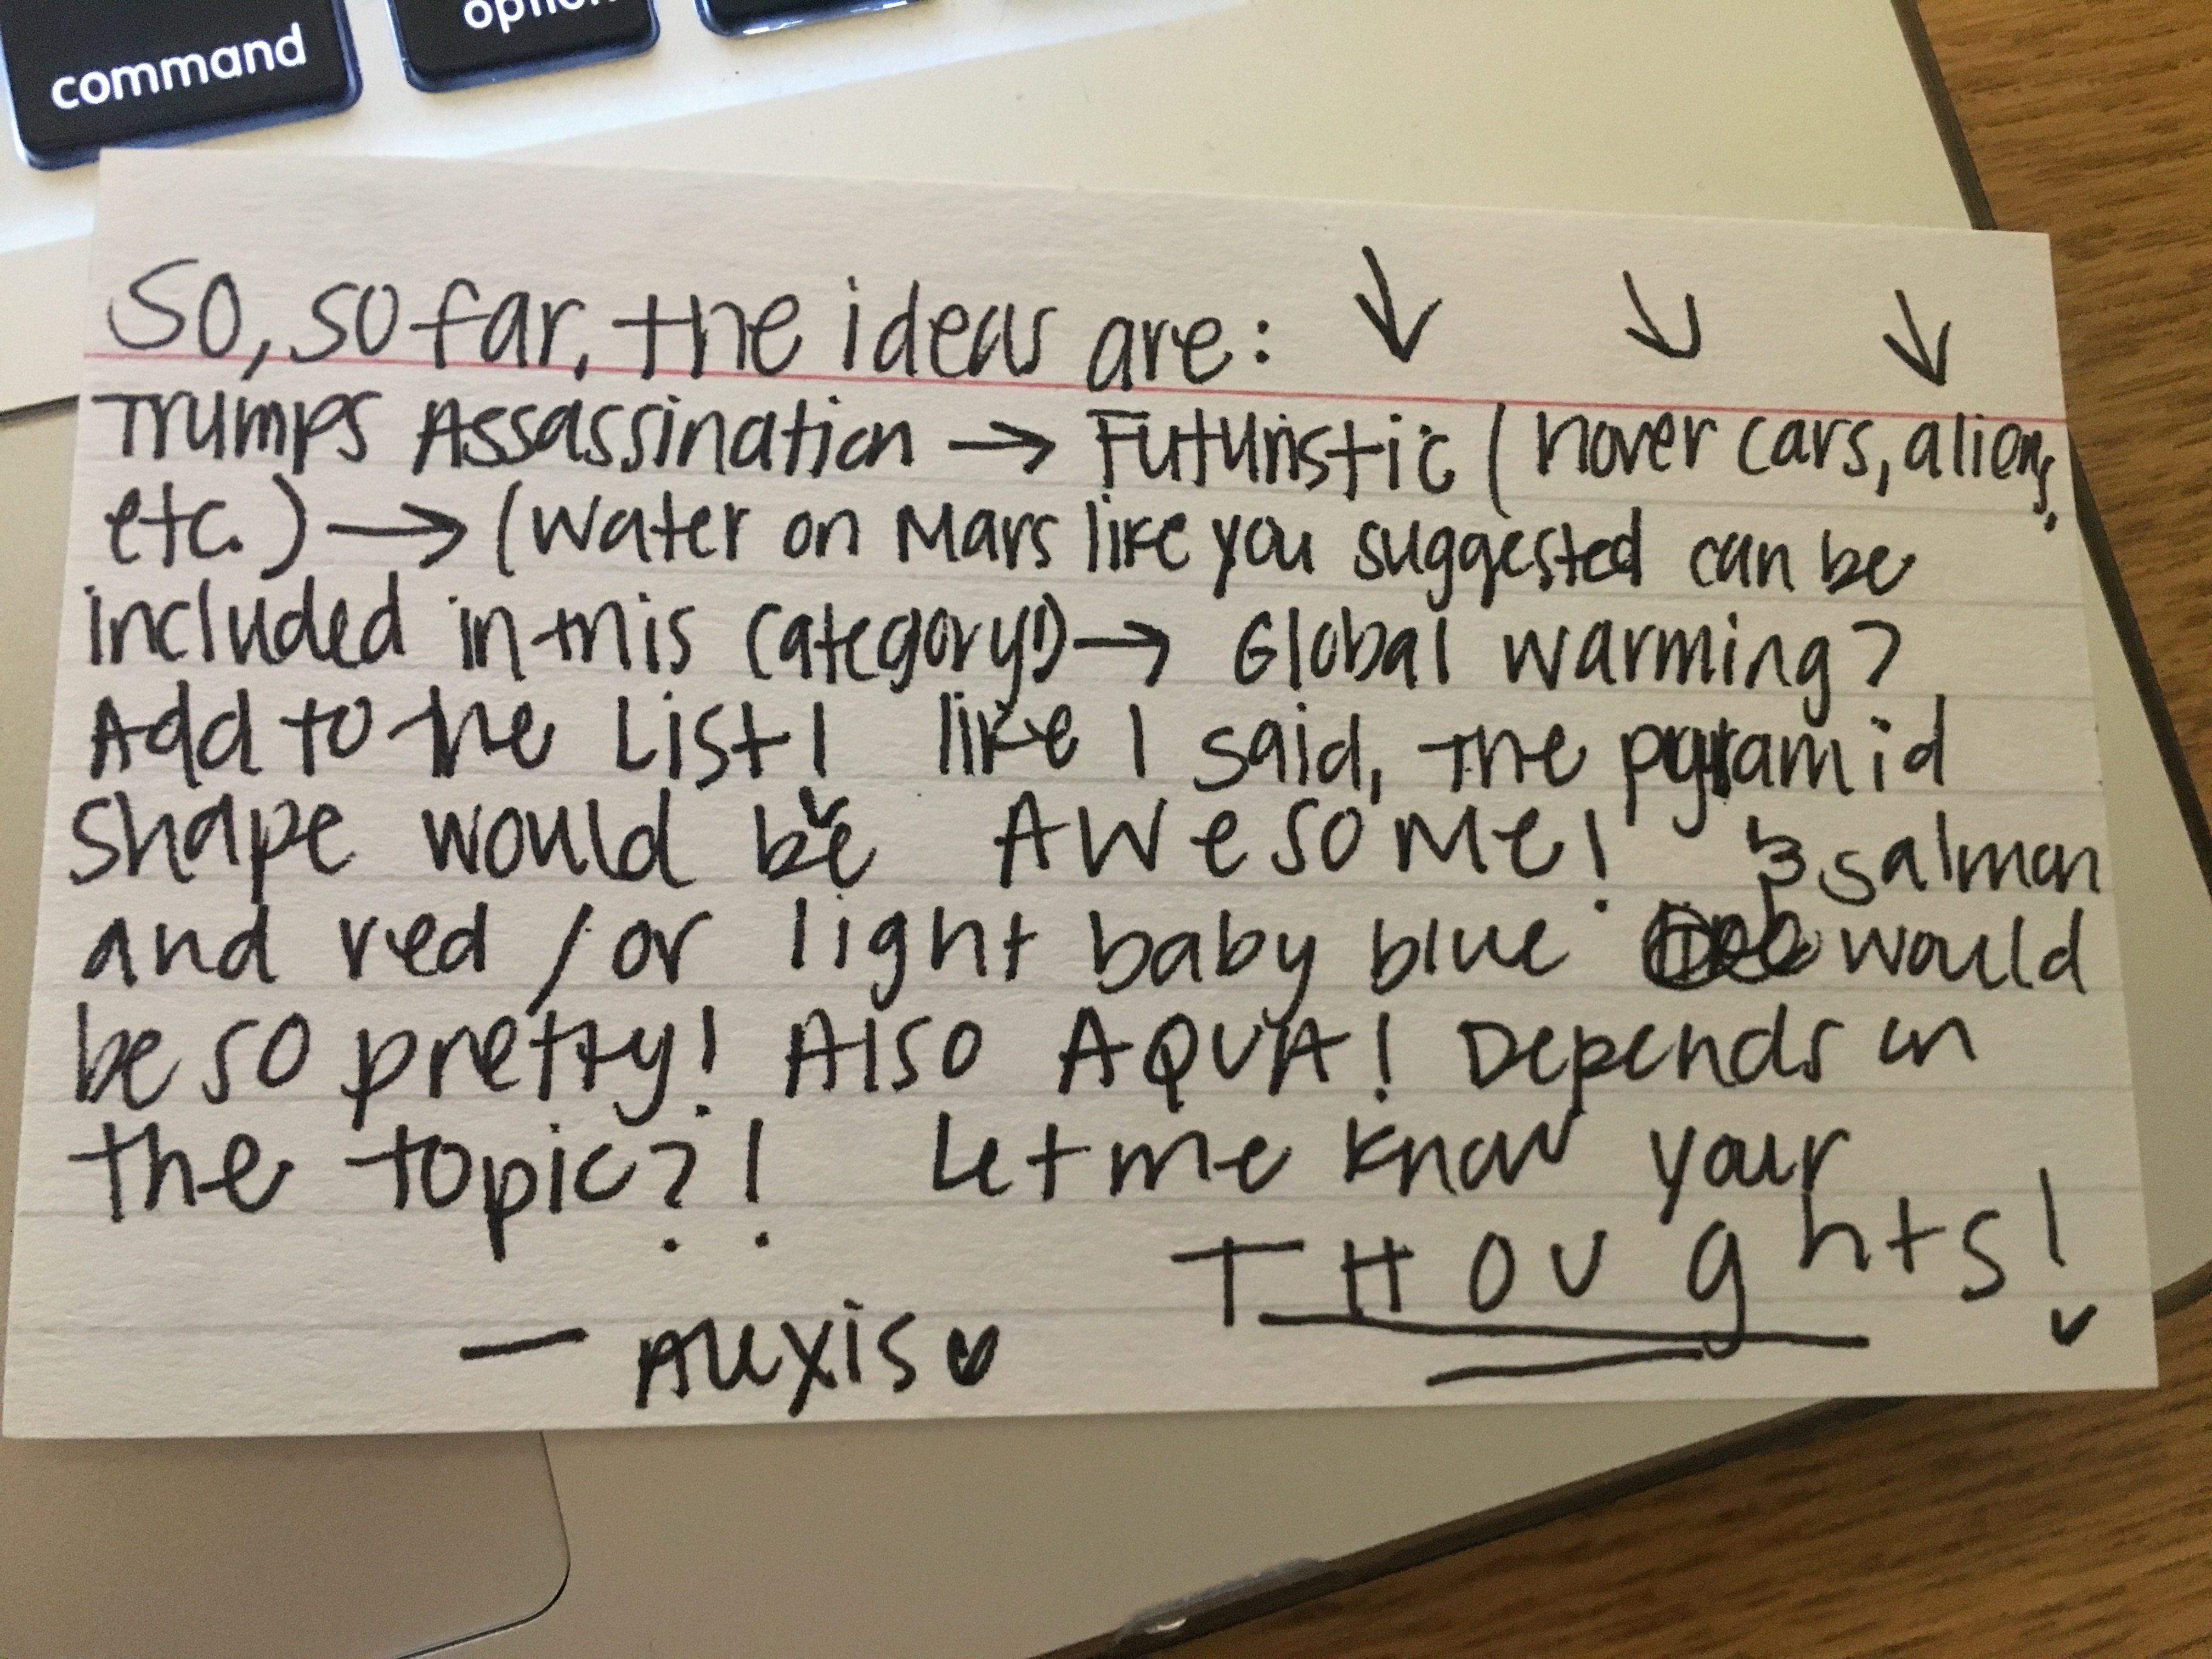 So, so far, the ideas are: ↓ ↓ ↓
Trumps Assassination → Futuristic (hover cars, aliens,
etc.) → (water on Mars like you suggested can be
included in this category!) → Global warming?
Add to the List! like I said, the pyramid
shape would be AWESOME! salmon
and red/or light baby blue would
be so pretty! Also AQUA! Depends on
the topic?! Let me know your
THOUghts!
- Alexis
command